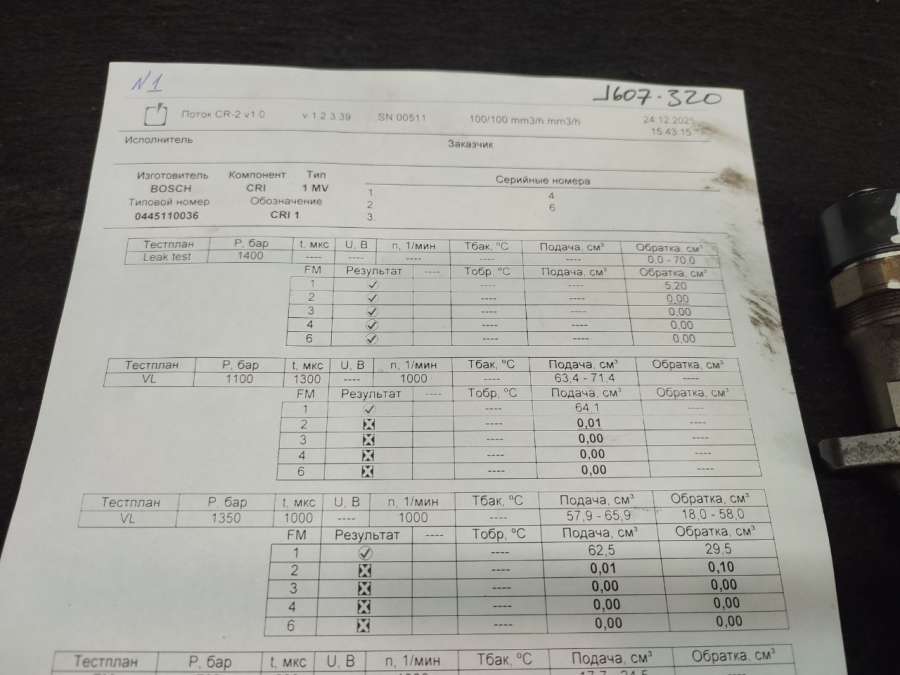 N1
1607-320
Поток CR-2 v1.0 v 1.2.3.39 SN 00511 100/100 mm3/h mm3/h 24.12.2021
15:43:15
Исполнитель Заказчик
Изготовитель Компонент Тип Серийные номера
BOSCH CRI 1 MV 1 4
Типовой номер Обозначение 2 6
0445110036 CRI 1 3
Тестплан P, бар t, мкс U, В n, 1/мин Tбак, °C Подача, см³ Обратка, см³
Leak test 1400 ---- ---- ---- ---- ---- 0,0 - 70,0
FM Результат ---- Tобр, °C Подача, см³ Обратка, см³
1 ---- ---- 5,20
2 ---- ---- 0,00
3 ---- ---- 0,00
4 ---- ---- 0,00
6 ---- ---- 0,00
Тестплан P, бар t, мкс U, В n, 1/мин Tбак, °C Подача, см³ Обратка, см³
VL 1100 1300 ---- 1000 ---- 63,4 - 71,4 ----
FM Результат ---- Tобр, °C Подача, см³ Обратка, см³
1 ---- 64,1 ----
2 ---- 0,01 ----
3 ---- 0,00 ----
4 ---- 0,00 ----
6 ---- 0,00 ----
Тестплан P, бар t, мкс U, В n, 1/мин Tбак, °C Подача, см³ Обратка, см³
VL 1350 1000 ---- 1000 ---- 57,9 - 65,9 18,0 - 58,0
FM Результат ---- Tобр, °C Подача, см³ Обратка, см³
1 ---- 62,5 29,5
2 ---- 0,01 0,10
3 ---- 0,00 0,00
4 ---- 0,00 0,00
6 ---- 0,00 0,00
Тестплан P, бар t, мкс U, В n, 1/мин Tбак, °C Подача, см³ Обратка, см³